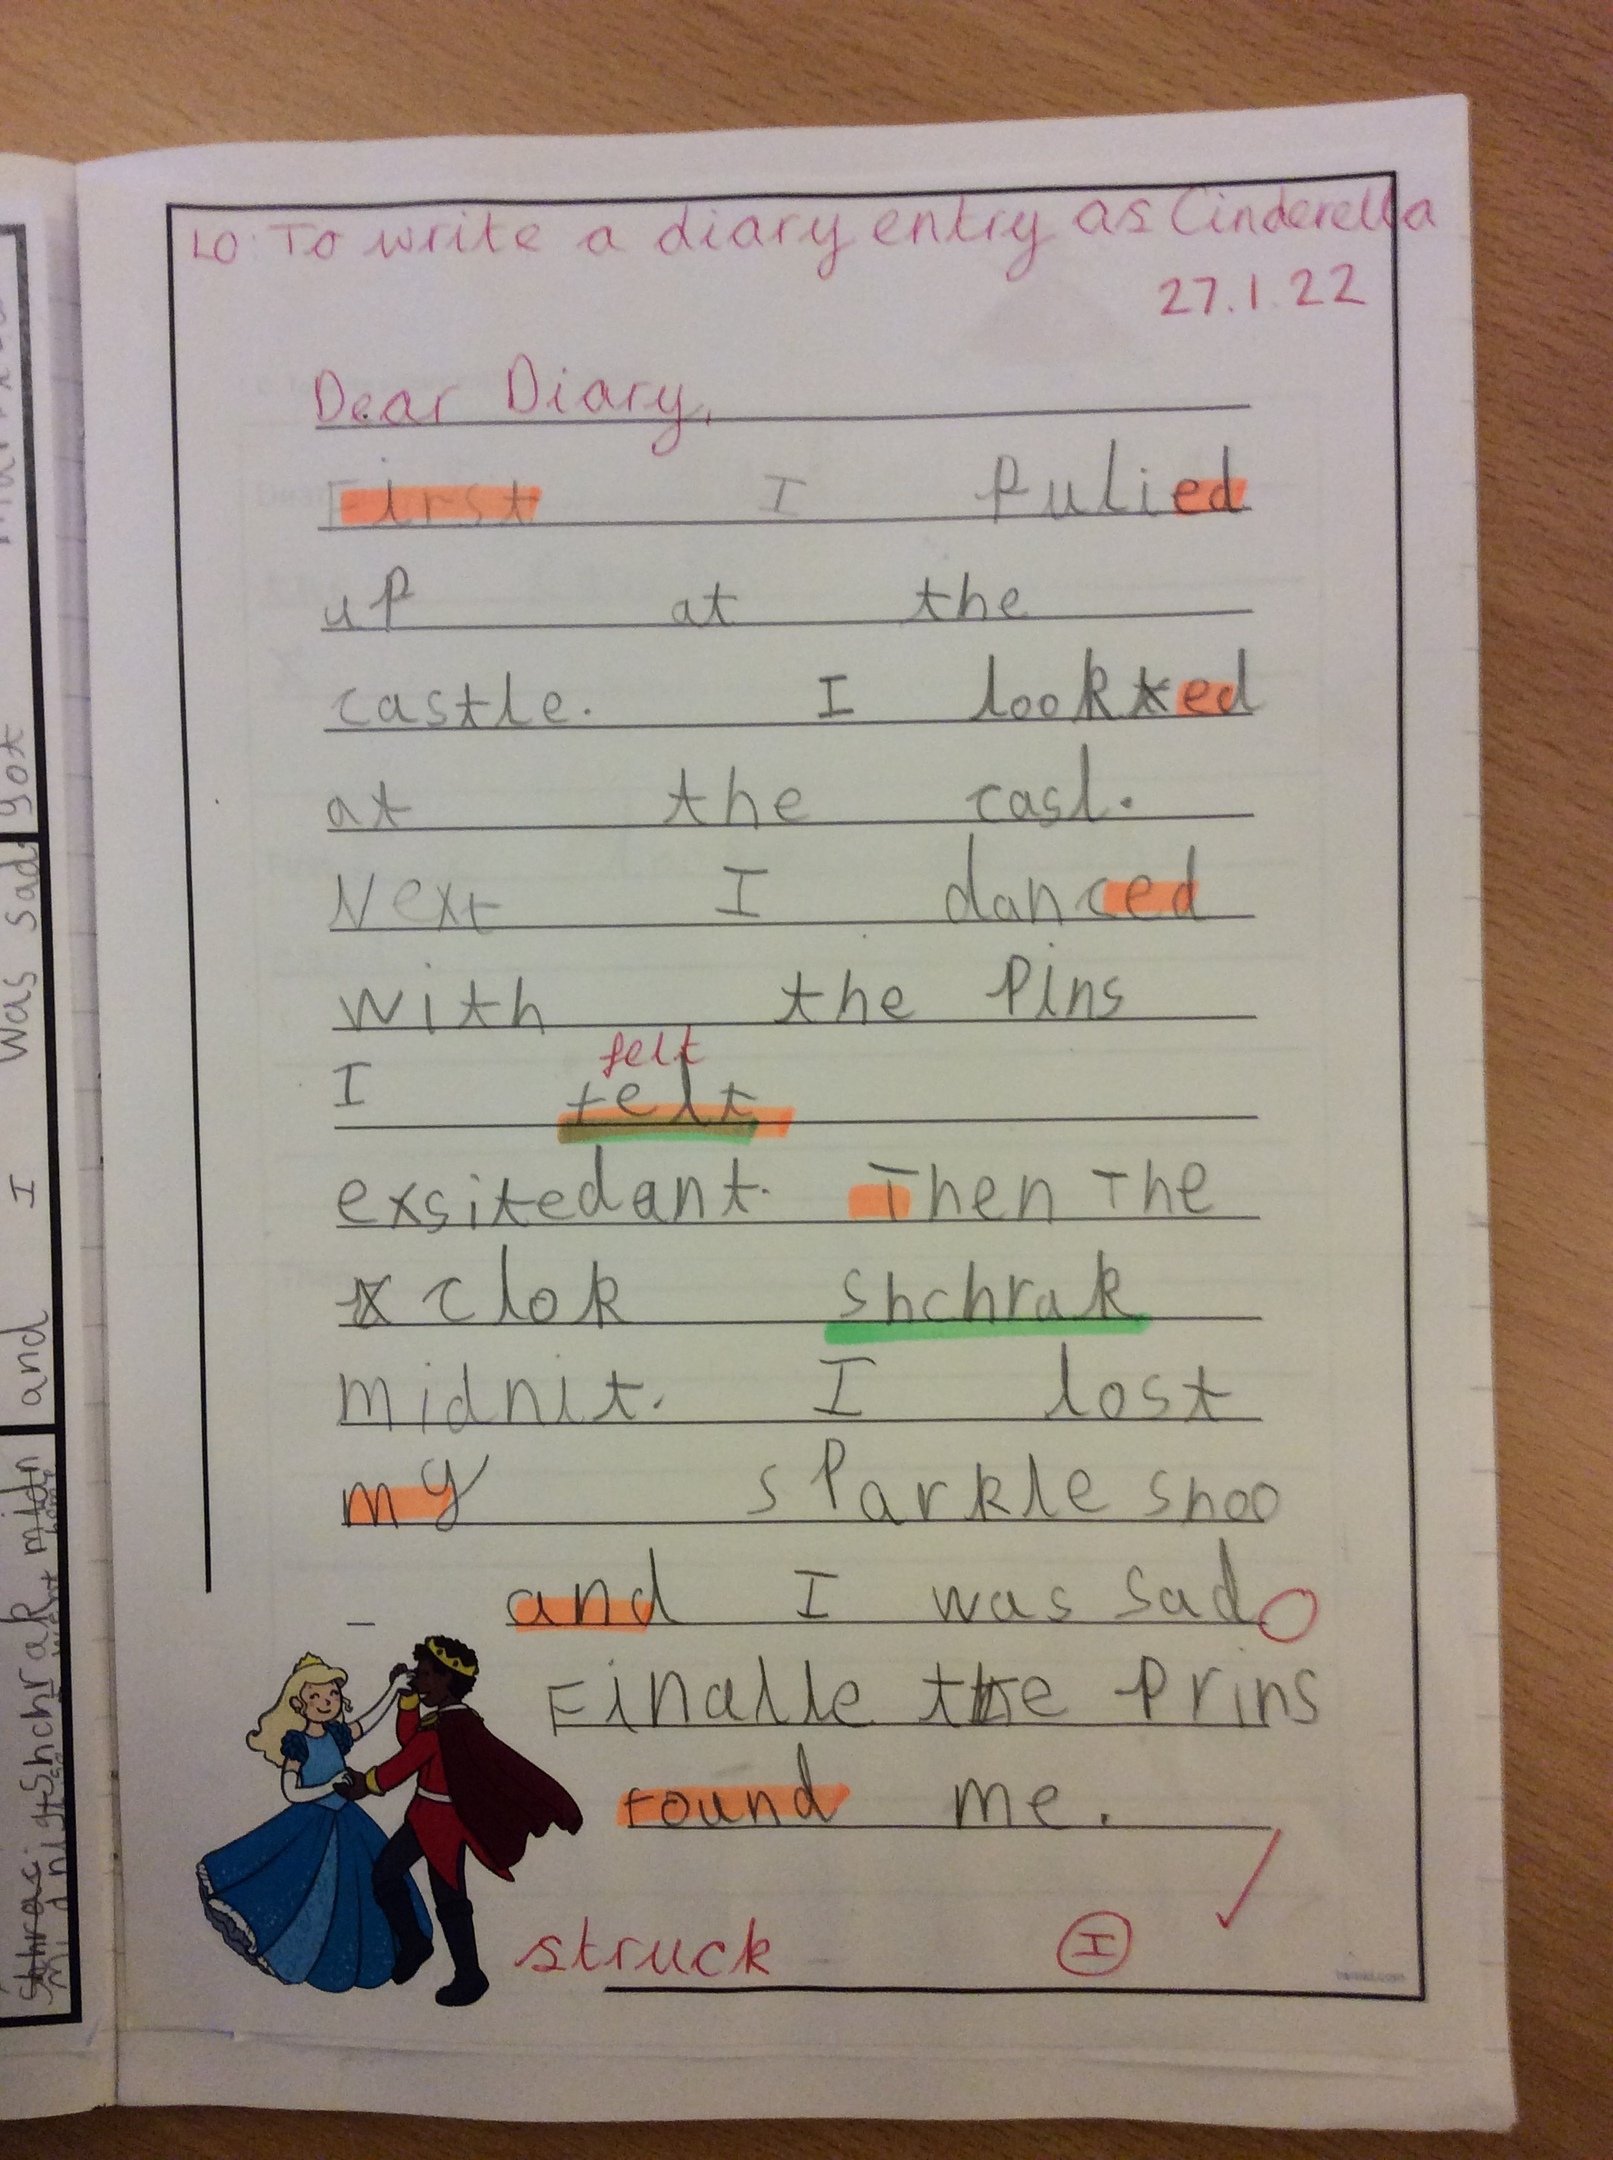 LO: To write a diary entry as Cinderella
27.1.22
Dear Diary,
First I Pulied
up at the
castle. I looked
at the casl.
Next I danced
with the Pins
felt
I felt
exsitedant. Then The
clok shchrak
midnit. I lost
my sParkle shoo
and I was sad
Finalle the Prins
found me.
struck I
and I was sad got